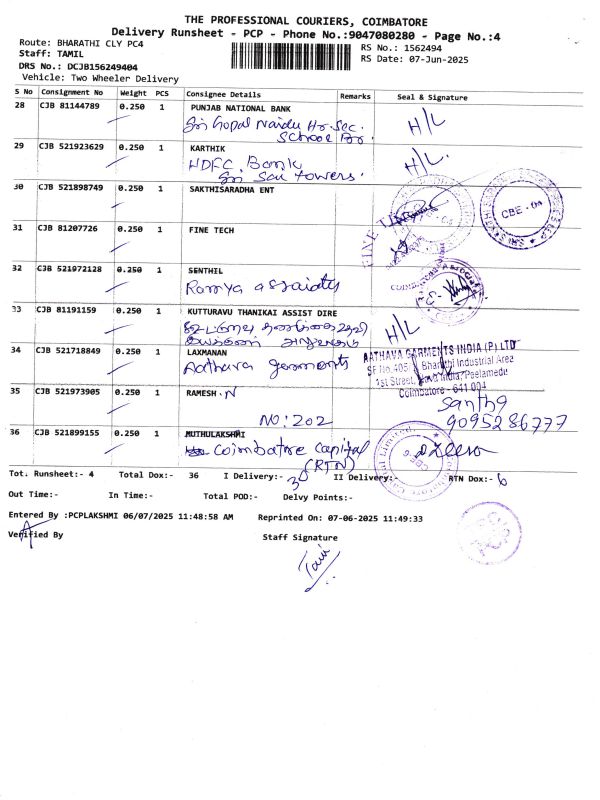 THE PROFESSIONAL COURIERS, COIMBATORE
Delivery Runsheet - PCP - Phone No.:9047080280 - Page No.:4
Route: BHARATHI CLY PC4
Staff: TAMIL
DRS No.: DCJB156249404
Vehicle: Two Wheeler Delivery
RS No.: 1562494
RS Date: 07-Jun-2025
S No Consignment No Weight PCS Consignee Details Remarks Seal & Signature
28 CJB 81144789 0.250 1 PUNJAB NATIONAL BANK H/L
Sri Gopal Naidu Hr. Sec.
School Br.
29 CJB 521923629 0.250 1 KARTHIK H/L.
HDFC Bank
Sri Sai Towers.
30 CJB 521898749 0.250 1 SAKTHISARADHA ENT
CBE - 04
31 CJB 81207726 0.250 1 FINE TECH
FINE T
32 CJB 521972128 0.250 1 SENTHIL
Ramya associates
33 CJB 81191159 0.250 1 KUTTURAVU THANIKAI ASSIST DIRE H/L
34 CJB 521718849 0.250 1 LAXMANAN
Aathava garments
AATHAVA GARMENTS INDIA (P) LTD
SF No.405 Bharathi Industrial Area
1st Street, Peelamedu
Coimbatore - 641 004
35 CJB 521973905 0.250 1 RAMESH.N
NO: 202
9095286777
36 CJB 521899155 0.250 1 MUTHULAKSHMI
Coimbatore Capital
(RTN)
Tot. Runsheet:- 4 Total Dox:- 36 I Delivery:- 30 II Delivery:- RTN Dox:- 6
Out Time:- In Time:- Total POD:- Delvy Points:-
Entered By :PCPLAKSHMI 06/07/2025 11:48:58 AM Reprinted On: 07-06-2025 11:49:33
Verified By Staff Signature